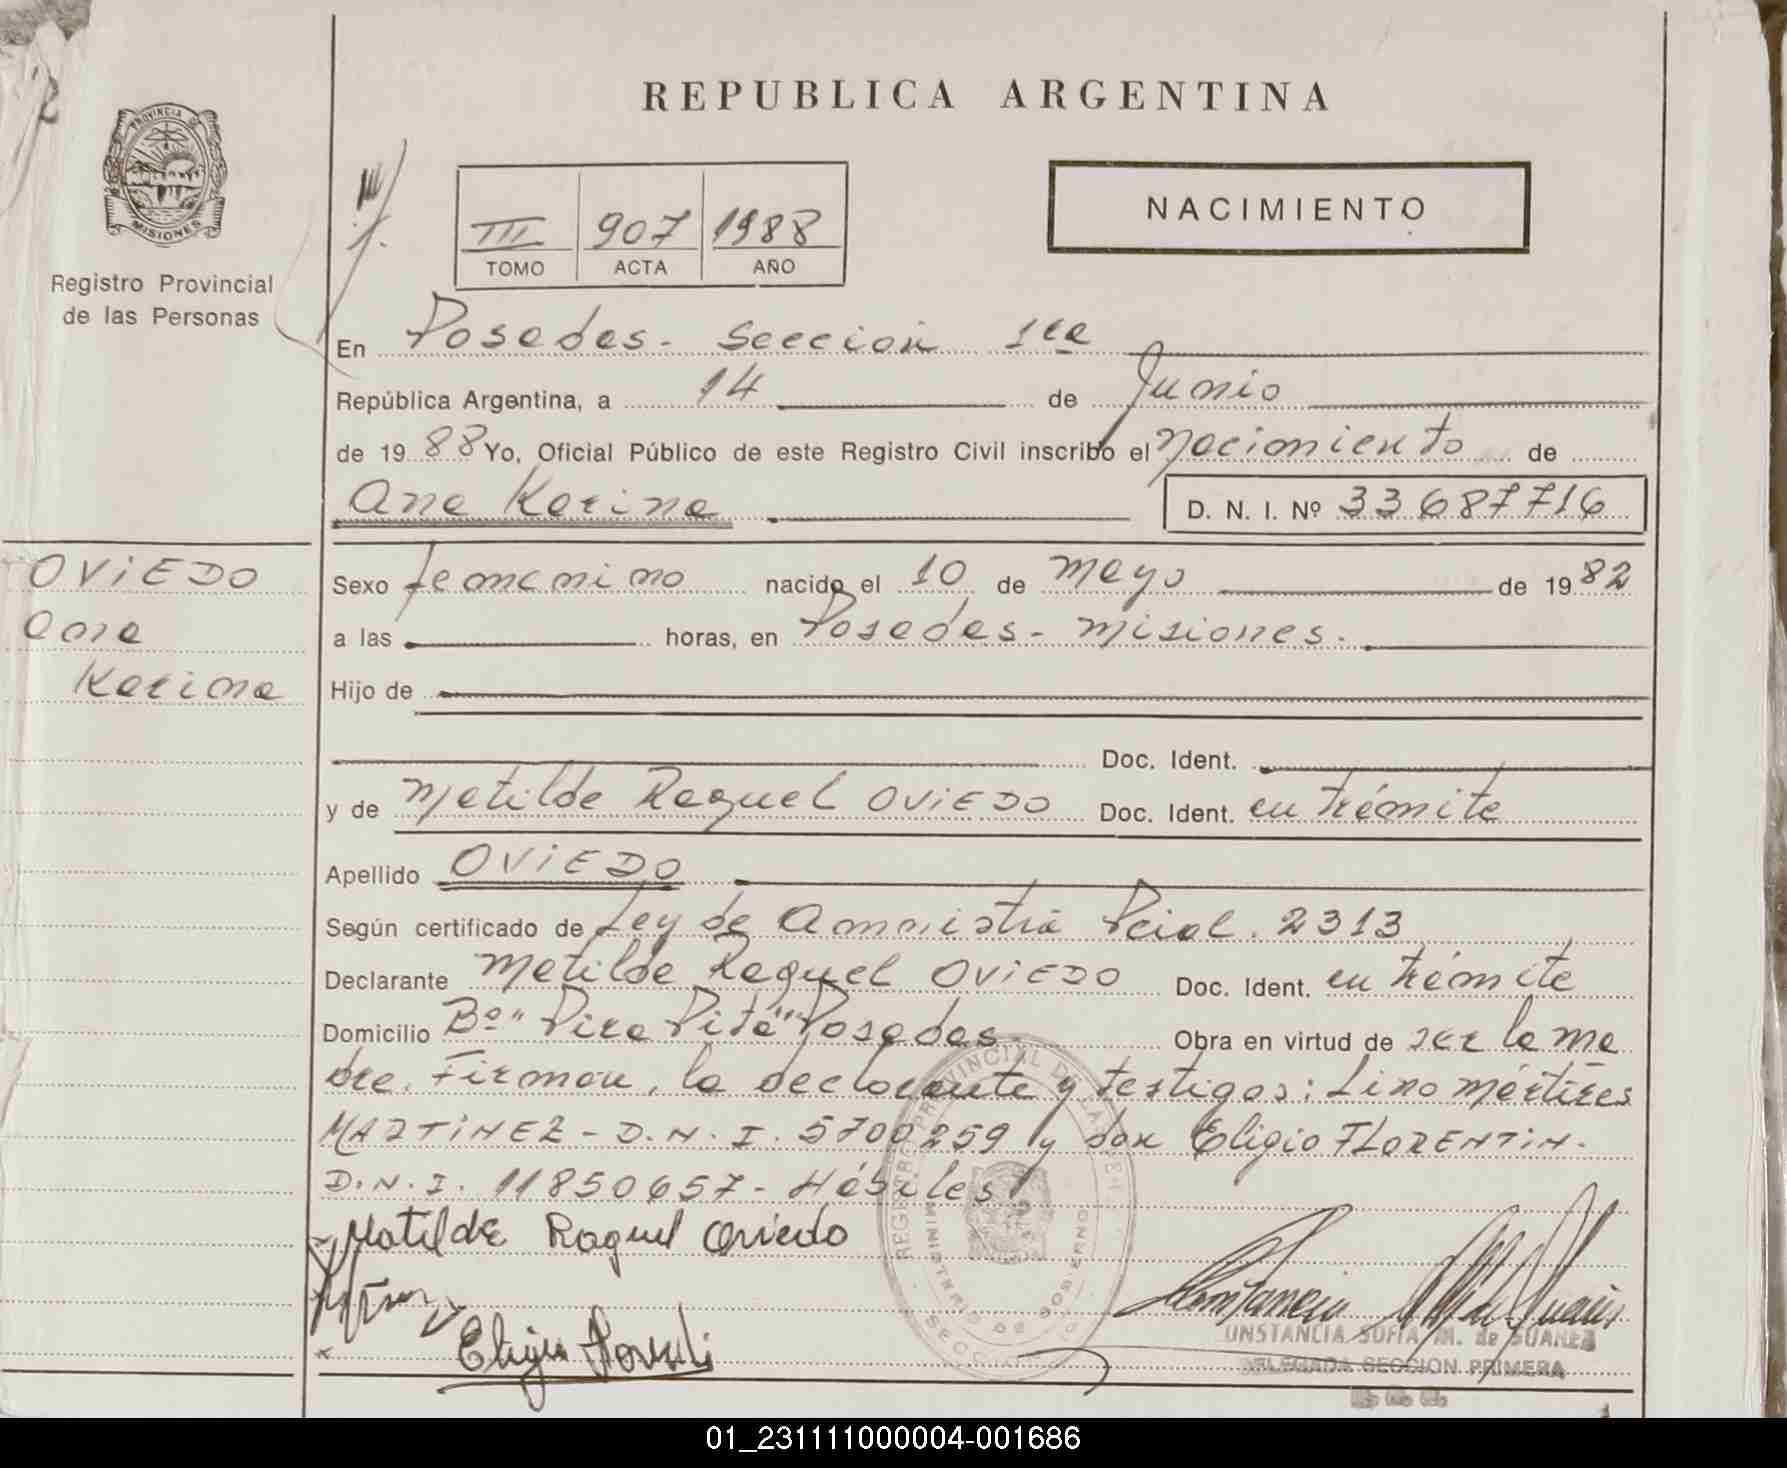 REPUBLICA ARGENTINA
PROVINCIA DE
MISIONES
Registro Provincial
de las Personas
III 907 1988
TOMO ACTA AÑO
NACIMIENTO
En Posadas - Sección 1ra
República Argentina, a 14 de Junio
de 1988 Yo, Oficial Público de este Registro Civil inscribo el nacimiento de
Ana Karina D. N. I. Nº 33687716
OVIEDO
Ana
Karina
Sexo femenino nacido el 10 de mayo de 1982
a las horas, en Posadas - Misiones.
Hijo de
Doc. Ident.
y de Matilde Raquel OVIEDO Doc. Ident. en trámite
Apellido OVIEDO
Según certificado de Ley de Amnistía Pcial. 2313
Declarante Matilde Raquel OVIEDO Doc. Ident. en trámite
Domicilio Bº "Pira Pitá" Posadas Obra en virtud de ser la ma
dre. Firman, la declarante y testigos: Lino Mártires
MARTINEZ - D.N.I. 5700259 y don Eligio FLORENTIN.
D.N.I. 11850657 - Hábiles
Matilde Raquel Oviedo
Eligio
REGISTRO PROVINCIAL DE LAS
MINISTERIO DE GOBIERNO
Constancia
ONSTANCIA SOFIA M. de SUAREZ
DELEGADA SECCION PRIMERA
01_231111000004-001686